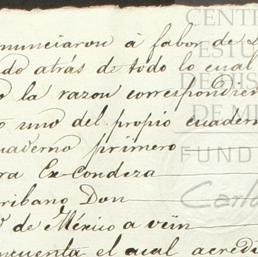 nunciaron à fabor de
do atrás de todo lo cual
la razon correspondien
uno del propio cuadern
uaderno primero
ra Ex-Condeza
cribano Don
de México a vein
cuenta el cual acredi
CENT
ESTU
DE DIS
DE M
FUND
Carlo